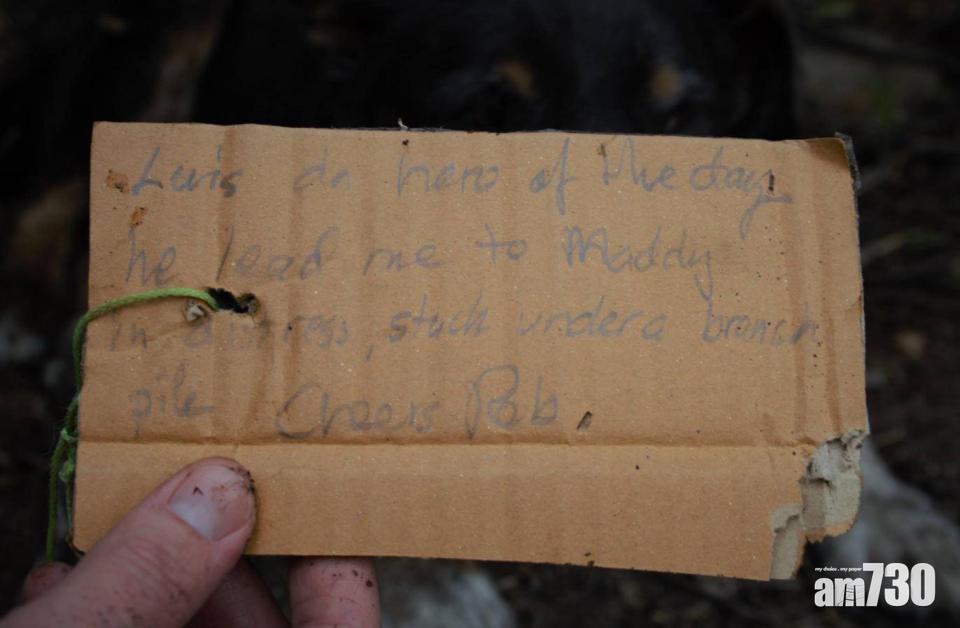 Luis da hero of the day
he lead me to Maddy
in distress, stuck under a branch
pile Cheers Rob.
my choice . my paper
am730